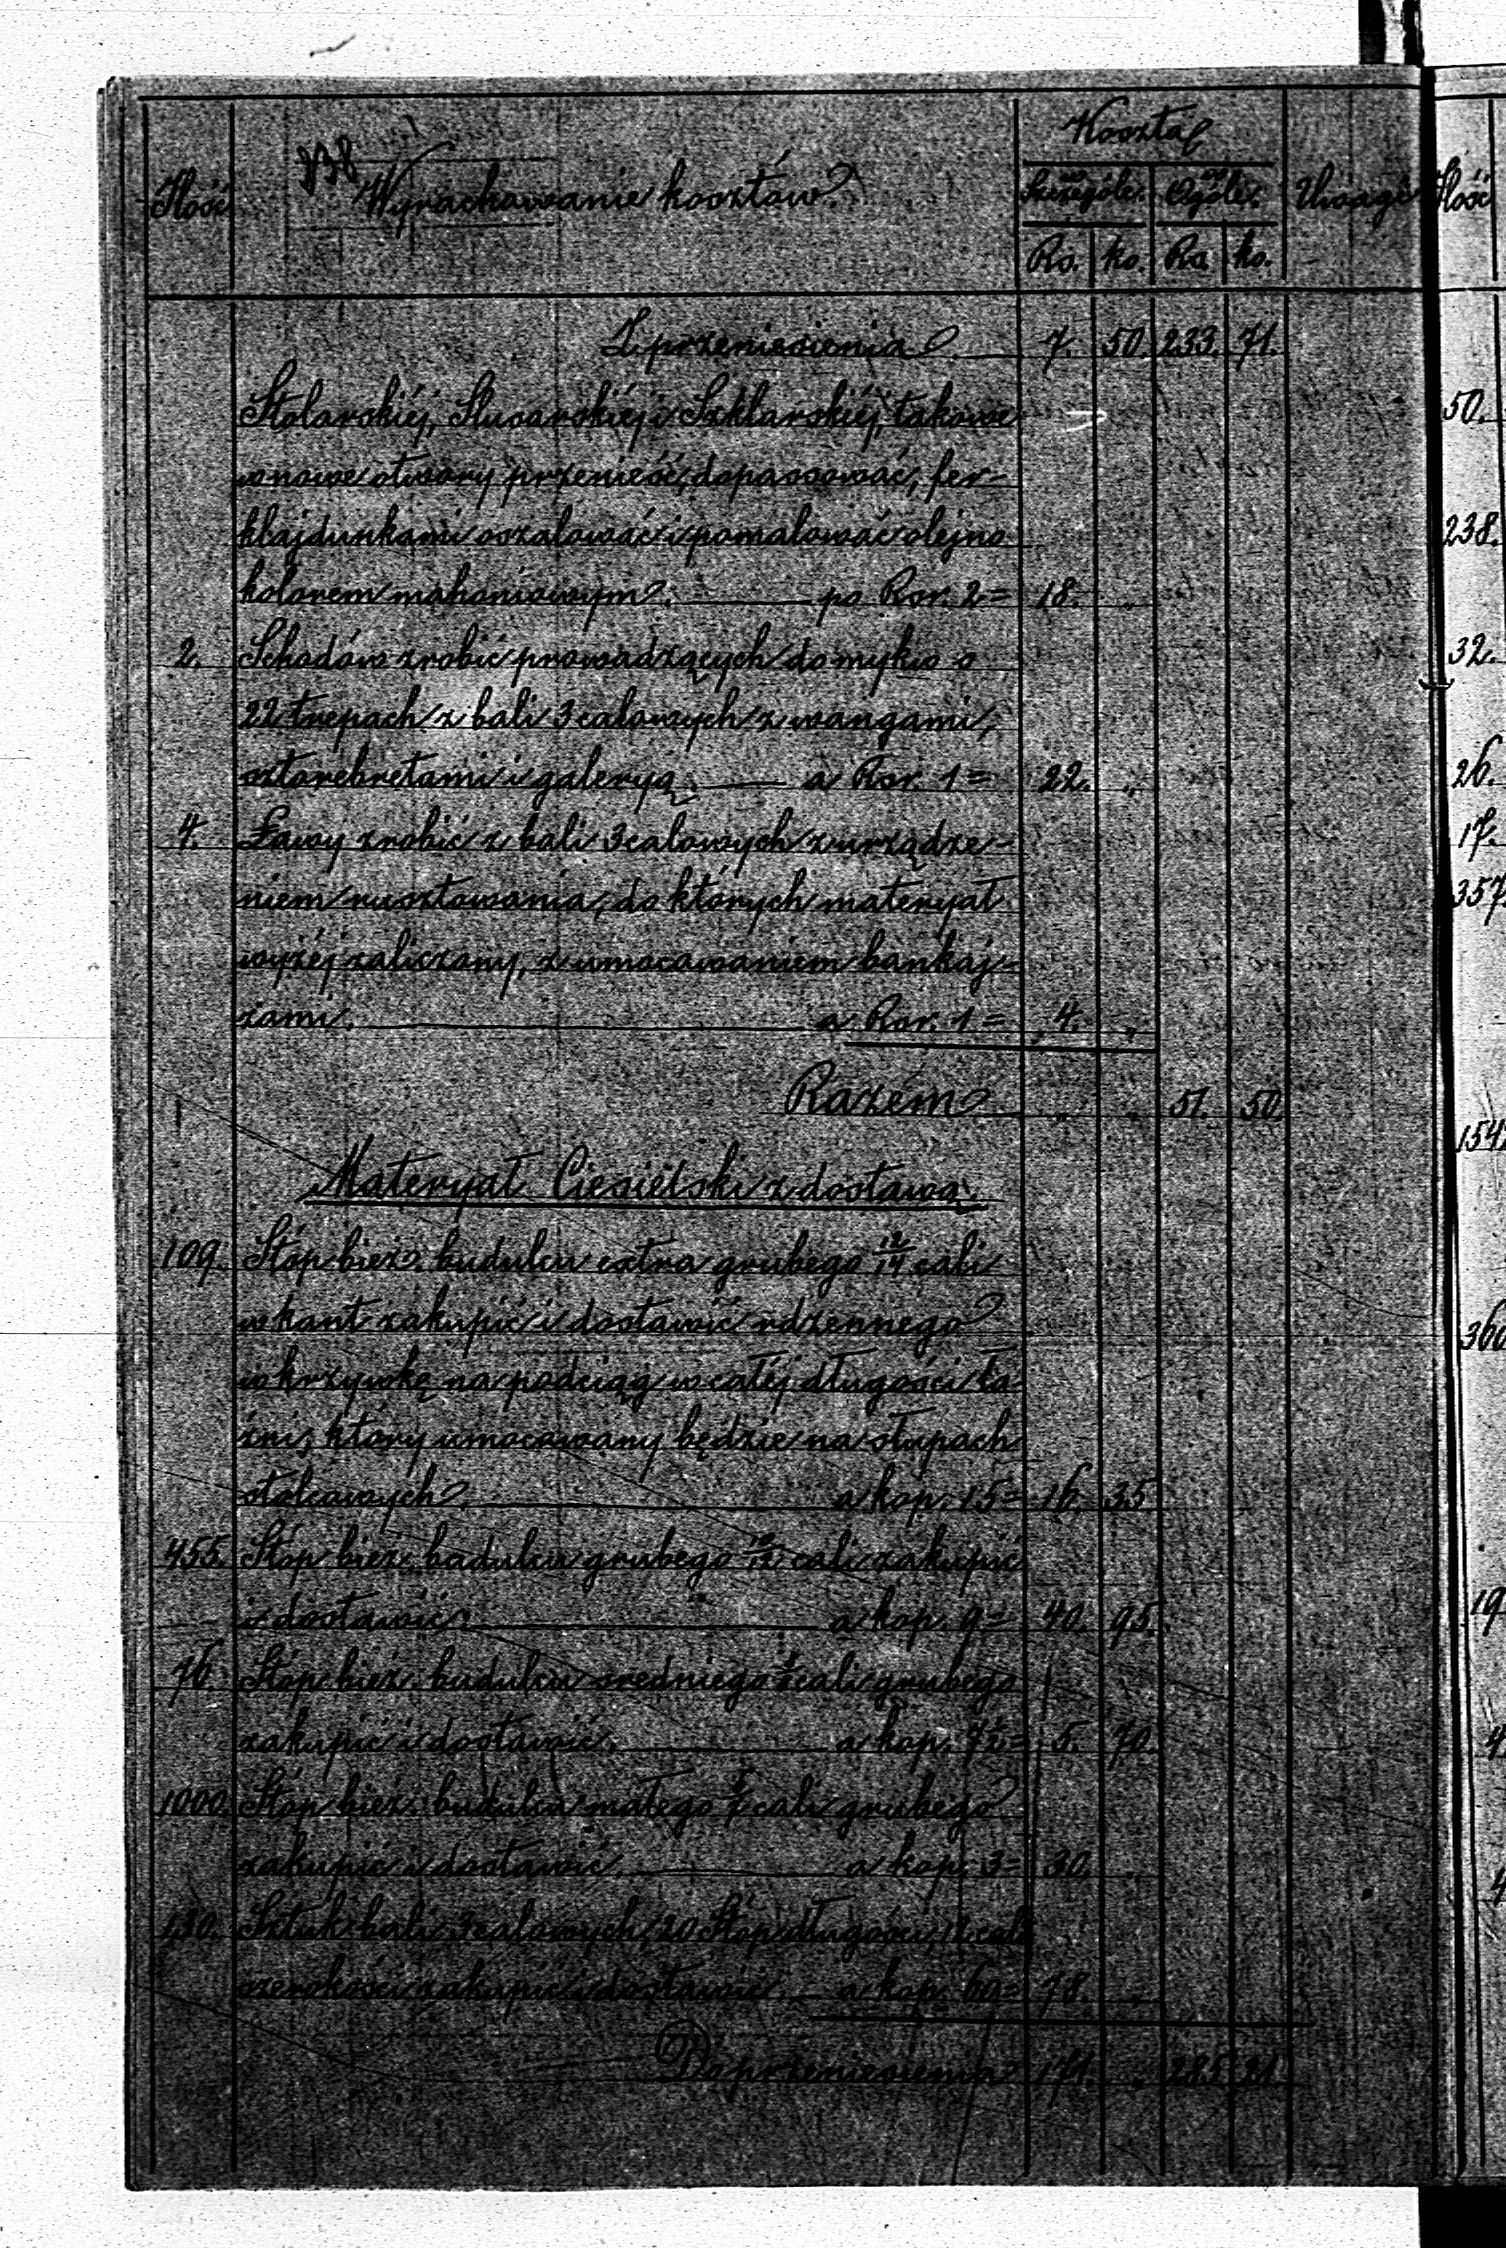 Koszta
838
Ilość Wyrachowanie kosztów w Szczególe. w Ogóle. Uwagi Ilość
Rs. ko. Rs. ko.
Z przeniesienia 7. 50. 233. 71.
Stolarskiéj, Slusarskiéj i Szklarskiéj, takowe
50.
w nowe otwory przenieść, dopassować, fer-
klajdunkami oszalować i pomalować olejno
238.
kolorem mahoniowym. po Rsr. 2 = 18. „
2. Schodów zrobić prowadzących do mykw o
32.
22 trepach z bali 3 calowych z wangami,
sztorcbretami i galeryą. a Rsr. 1 = 22. „
26.
4. Ławy zrobić z bali 3 calowych z urządze-
17.
niem rusztowania, do których materyał
357.
wyżéj zaliczony, z umocowaniem bankaj-
zami. a Rsr. 1 = 4. „
Razem „ „ 51. 50
154.
Materyał Ciesielski z dostawą.
109. Stóp bież. budulcu extra grubego 12/14 cali
w kant zakupić i dostawić rdzennego
360
w krzywkę na podciąg w całéj długości ła
źni, który umocowany będzie na słupach
stolcowych. a kop. 15 = 16. 35
455. Stóp bież. budulcu grubego 10/12 cali zakupić
i dostawić. a kop. 9 = 40. 95.
19
76 Stóp bież. budulcu sredniego cali grubego
zakupić i dostawić. a kop. 7 1/2 = 5. 70.
4
1000. Stóp bież. budulcu małego cali grubego
zakupić i dostawić. a kop. 3 = 30. „
4
130. Sztuk bali 3 calowych, 20 Stóp długości, 12 cali
szerokości zakupić i dostawić. a kop. 60 = 78. „
Do przeniesienia 171. „ 285. 21.